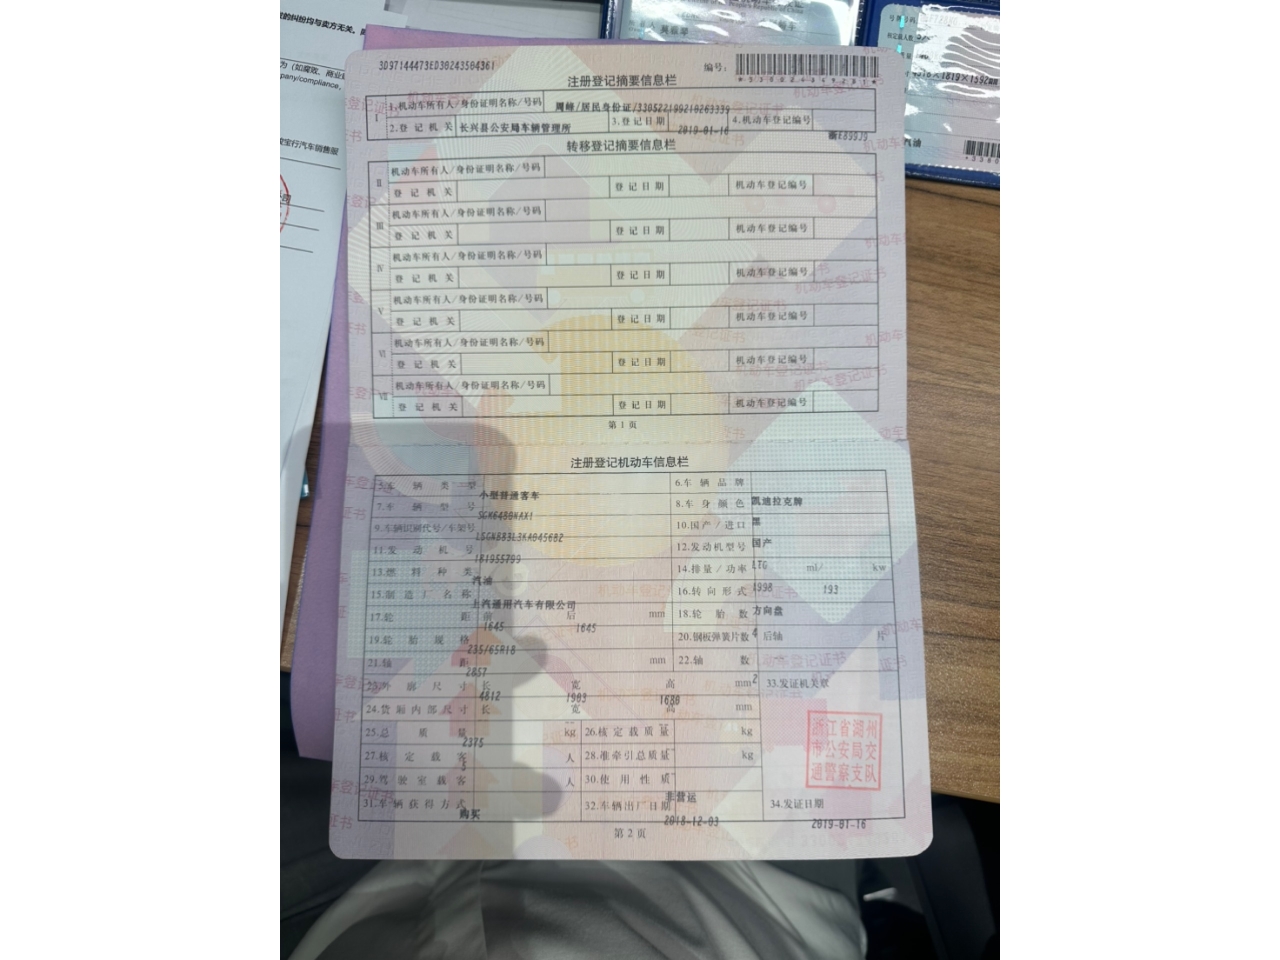 的纠纷均与卖方无关。
为（如腐败、商业
pany/compliance,
宝行汽车销售服
3D97144473ED30243504361
编号：
注册登记摘要信息栏
Ⅰ 1.机动车所有人/身份证明名称/号码
2.登记机关 长兴县公安局车辆管理所 3.登记日期 2019-01-16 4.机动车登记编号
转移登记摘要信息栏
Ⅱ 机动车所有人/身份证明名称/号码
登记机关 登记日期 机动车登记编号
Ⅲ 机动车所有人/身份证明名称/号码
登记机关 登记日期 机动车登记编号
Ⅳ 机动车所有人/身份证明名称/号码
登记机关 登记日期 机动车登记编号
Ⅴ 机动车所有人/身份证明名称/号码
登记机关 登记日期 机动车登记编号
Ⅵ 机动车所有人/身份证明名称/号码
登记机关 登记日期 机动车登记编号
Ⅶ 机动车所有人/身份证明名称/号码
登记机关 登记日期 机动车登记编号
第1页
注册登记机动车信息栏
5.车辆类型 小型普通客车 6.车辆品牌 凯迪拉克牌
7.车辆型号 8.车身颜色 黑
9.车辆识别代号/车架号 10.国产/进口 国产
11.发动机号 181955799 12.发动机型号 LTG
13.燃料种类 汽油 14.排量/功率 1998 ml/ 193 kw
15.制造厂名称 上汽通用汽车有限公司 16.转向形式 方向盘
17.轮距 前 1645 后 1645 mm 18.轮胎数 4
19.轮胎规格 235/65R18 20.钢板弹簧片数 后轴 片
21.轴距 2857 mm 22.轴数 2
23.外廓尺寸 长 4812 宽 1903 高 1680 mm 33.发证机关章
24.货厢内部尺寸 长 宽 高 mm
浙江省湖州
市公安局交
通警察支队
25.总质量 2375 kg 26.核定载质量 kg
27.核定载客 5 人 28.准牵引总质量 kg
29.驾驶室载客 人 30.使用性质 非营运
31.车辆获得方式 购买 32.车辆出厂日期 2018-12-03 34.发证日期 2019-01-16
第2页
汽油